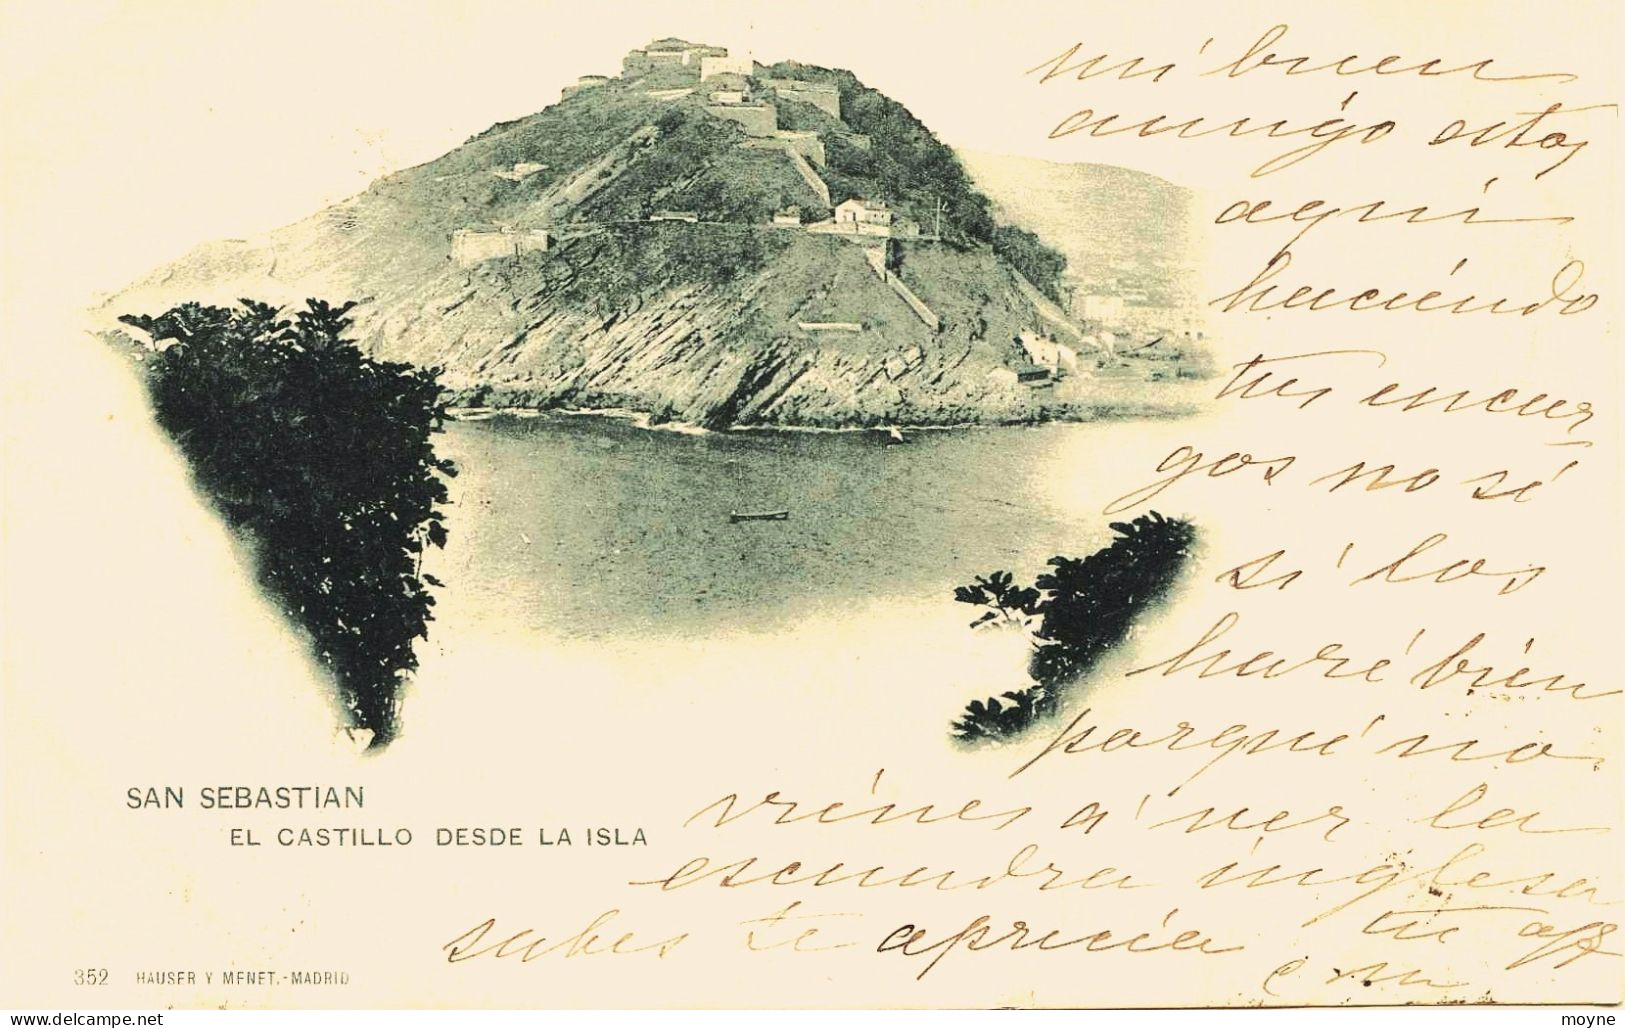 mi buen
amigo estoy
aqui
haciendo
tus encar
gos no sé
si los
haré bien
porqué no
vienes á ver la
escuadra inglesa
sabes te aprecia tu
SAN SEBASTIAN
EL CASTILLO DESDE LA ISLA
352 HAUSER Y MENET.-MADRID
delcampe.net
moyne